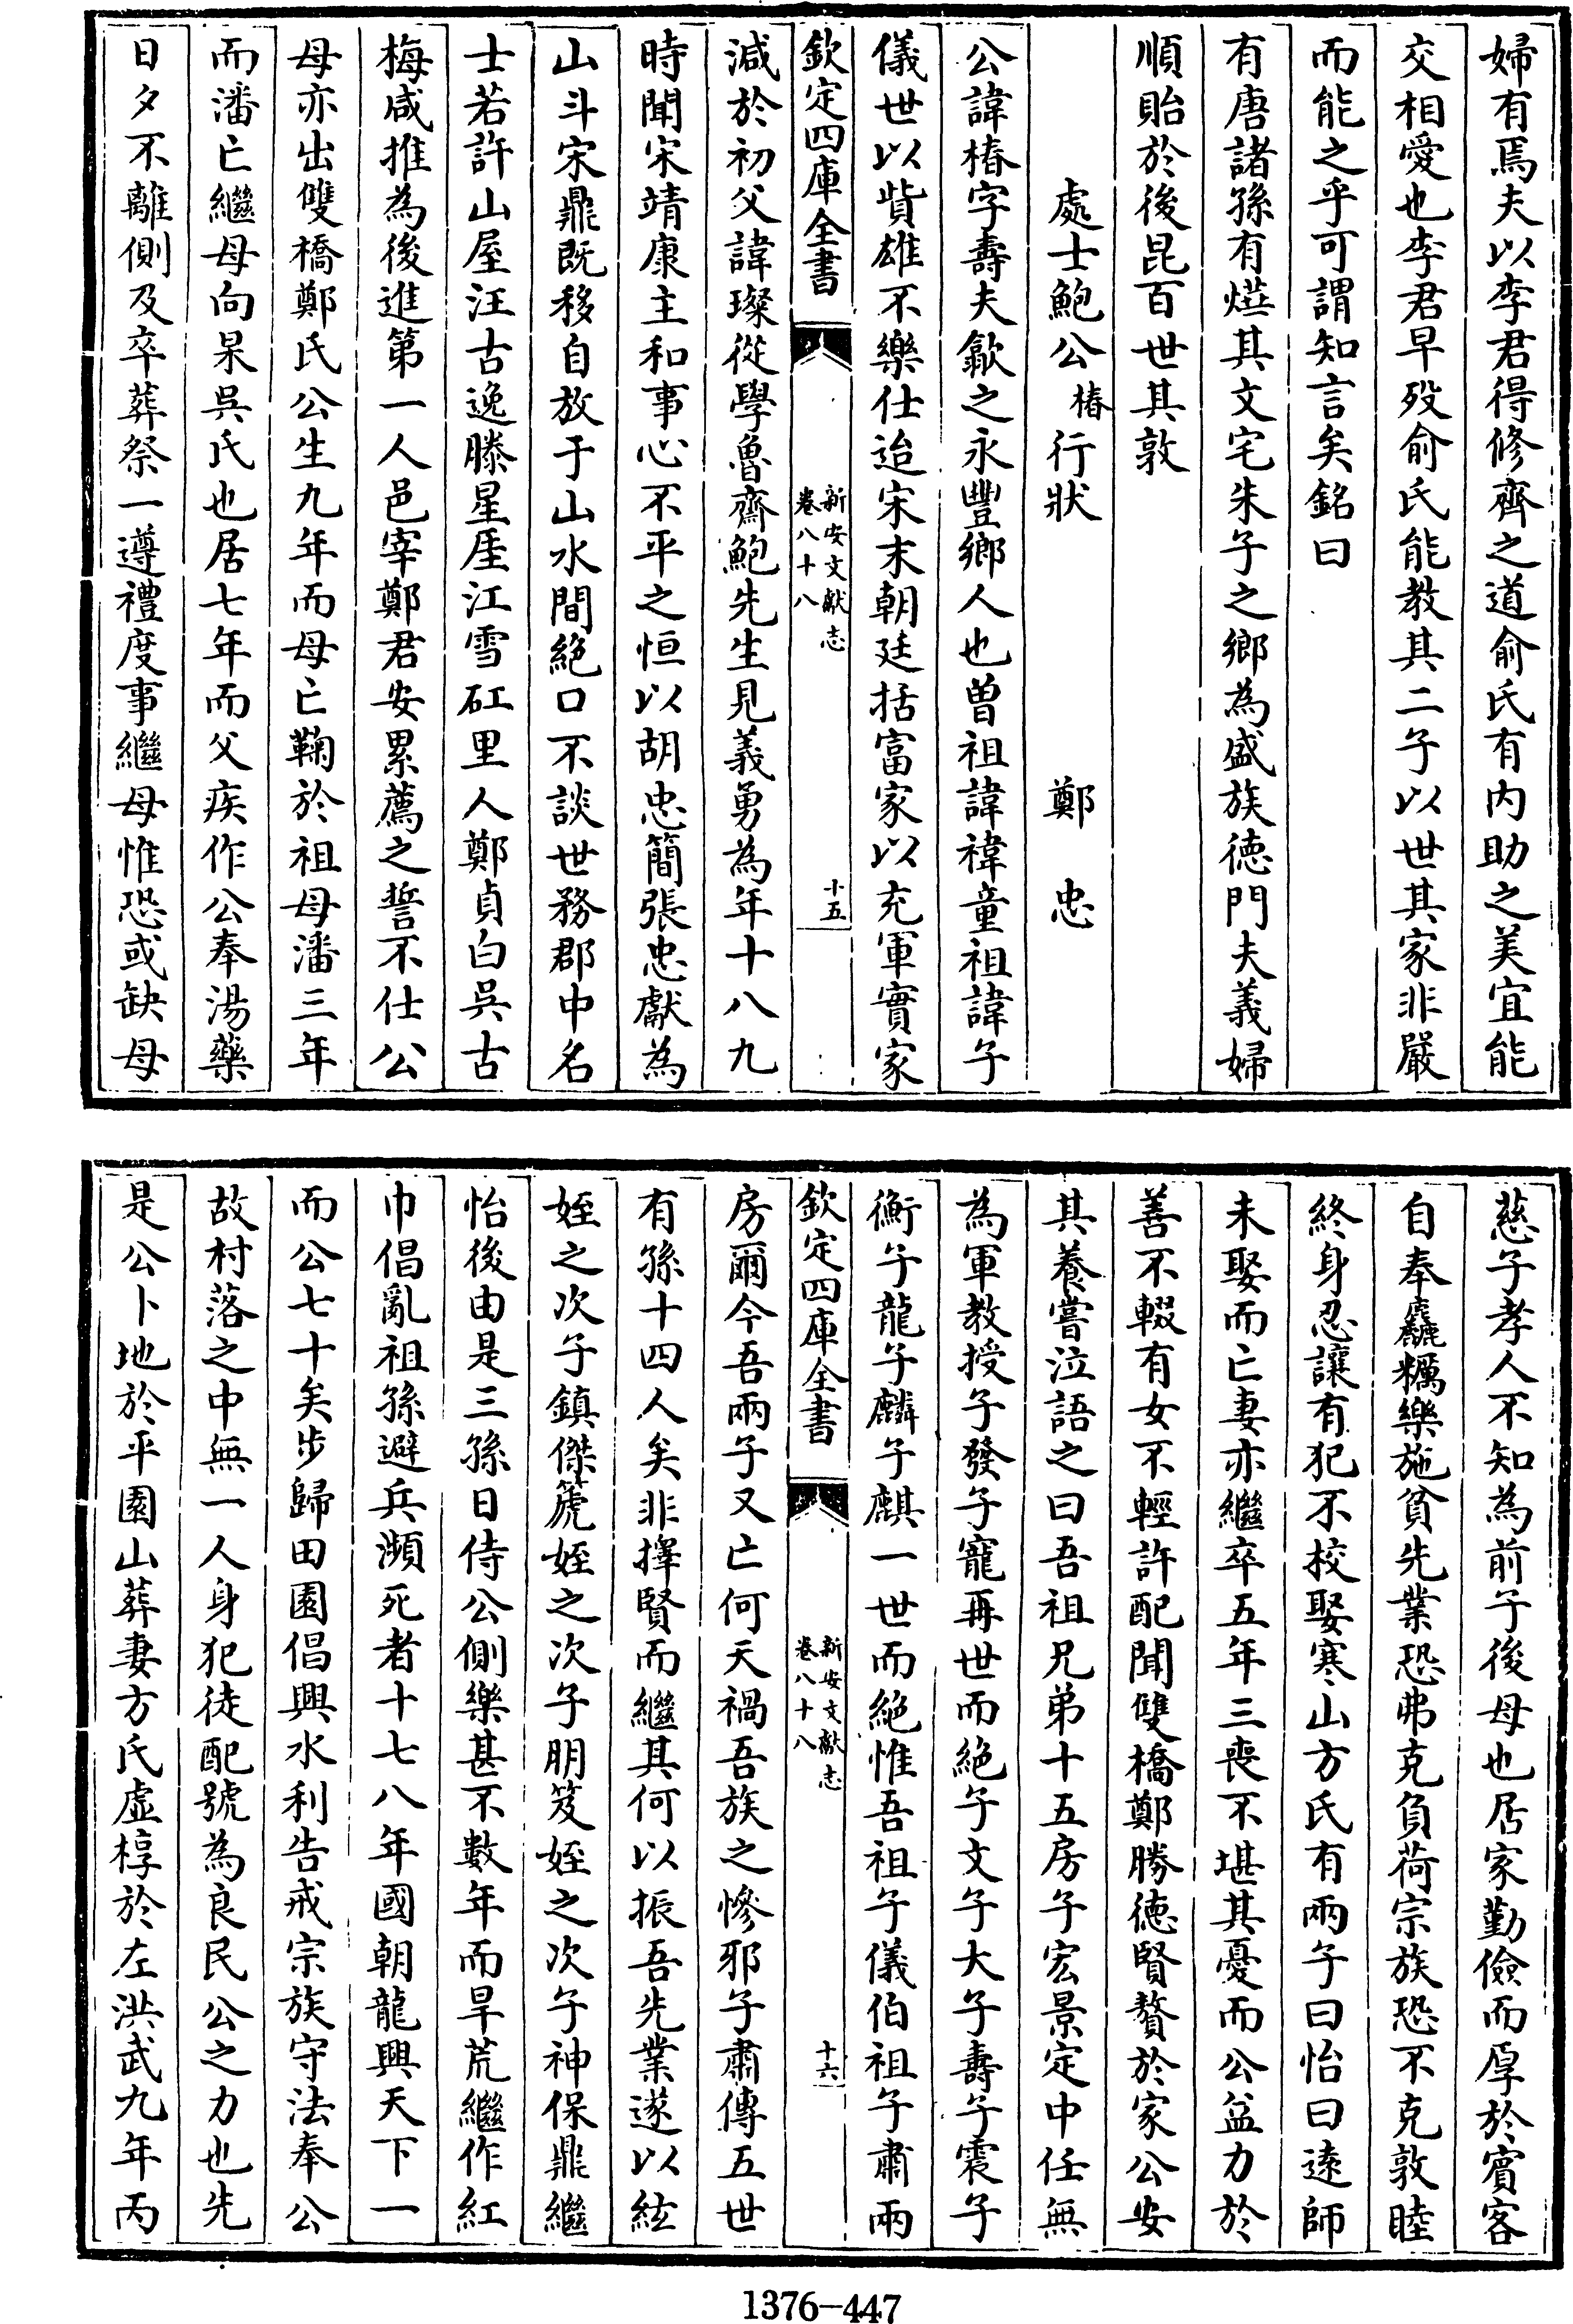 婦有焉夫以李君得修齊之道俞氏有内助之美宜能
交相愛也李君早歿俞氏能教其二子以世其家非嚴
而能之乎可謂知言矣銘曰
有唐諸孫有燁其文宅朱子之鄉為盛族徳門夫義婦
順貽於後昆百世其敦
處士鮑公椿行狀 鄭忠
公諱椿字壽夫歙之永豐鄉人也曽祖諱禕童祖諱子
儀世以貲雄不樂仕迨宋末朝廷括富家以充軍實家
欽定四庫全書 新安文獻志 卷八十八 十五
減於初父諱璨從學魯齋鮑先生見義勇為年十八九
時聞宋靖康主和事心不平之恒以胡忠簡張忠獻為
山斗宋鼎既移自放于山水間絶口不談世務郡中名
士若許山屋汪古逸滕星厓江雪矼里人鄭貞白吳古
梅咸推為後進第一人邑宰鄭君安累薦之誓不仕公
母亦出雙橋鄭氏公生九年而母亡鞠於祖母潘三年
而潘亡繼母向杲吳氏也居七年而父疾作公奉湯藥
日夕不離側及卒葬祭一遵禮度事繼母惟恐或缺母
慈子孝人不知為前子後母也居家勤儉而厚於賓客
自奉麤糲樂施貧先業恐弗克負荷宗族恐不克敦睦
終身忍讓有犯不校娶寒山方氏有兩子曰怡曰遠師
未娶而亡妻亦繼卒五年三喪不堪其憂而公益力於
善不輟有女不輕許配聞雙橋鄭勝徳賢贅於家公安
其養嘗泣語之曰吾祖兄弟十五房子宏景定中任無
為軍教授子發子寵再世而絶子文子大子壽子震子
衡子龍子麟子麒一世而絶惟吾祖子儀伯祖子肅兩
欽定四庫全書 新安文獻志 卷八十八 十六
房爾今吾兩子又亡何天禍吾族之慘邪子肅傳五世
有孫十四人矣非擇賢而繼其何以振吾先業遂以紘
姪之次子鎮傑箎姪之次子朋笈姪之次子神保鼎繼
怡後由是三孫日侍公側樂甚不數年而旱荒繼作紅
巾倡亂祖孫避兵瀕死者十七八年國朝龍興天下一
而公七十矣步歸田園倡興水利告戒宗族守法奉公
故村落之中無一人身犯徒配號為良民公之力也先
是公卜地於平園山葬妻方氏虚椁於左洪武九年丙
1376-447